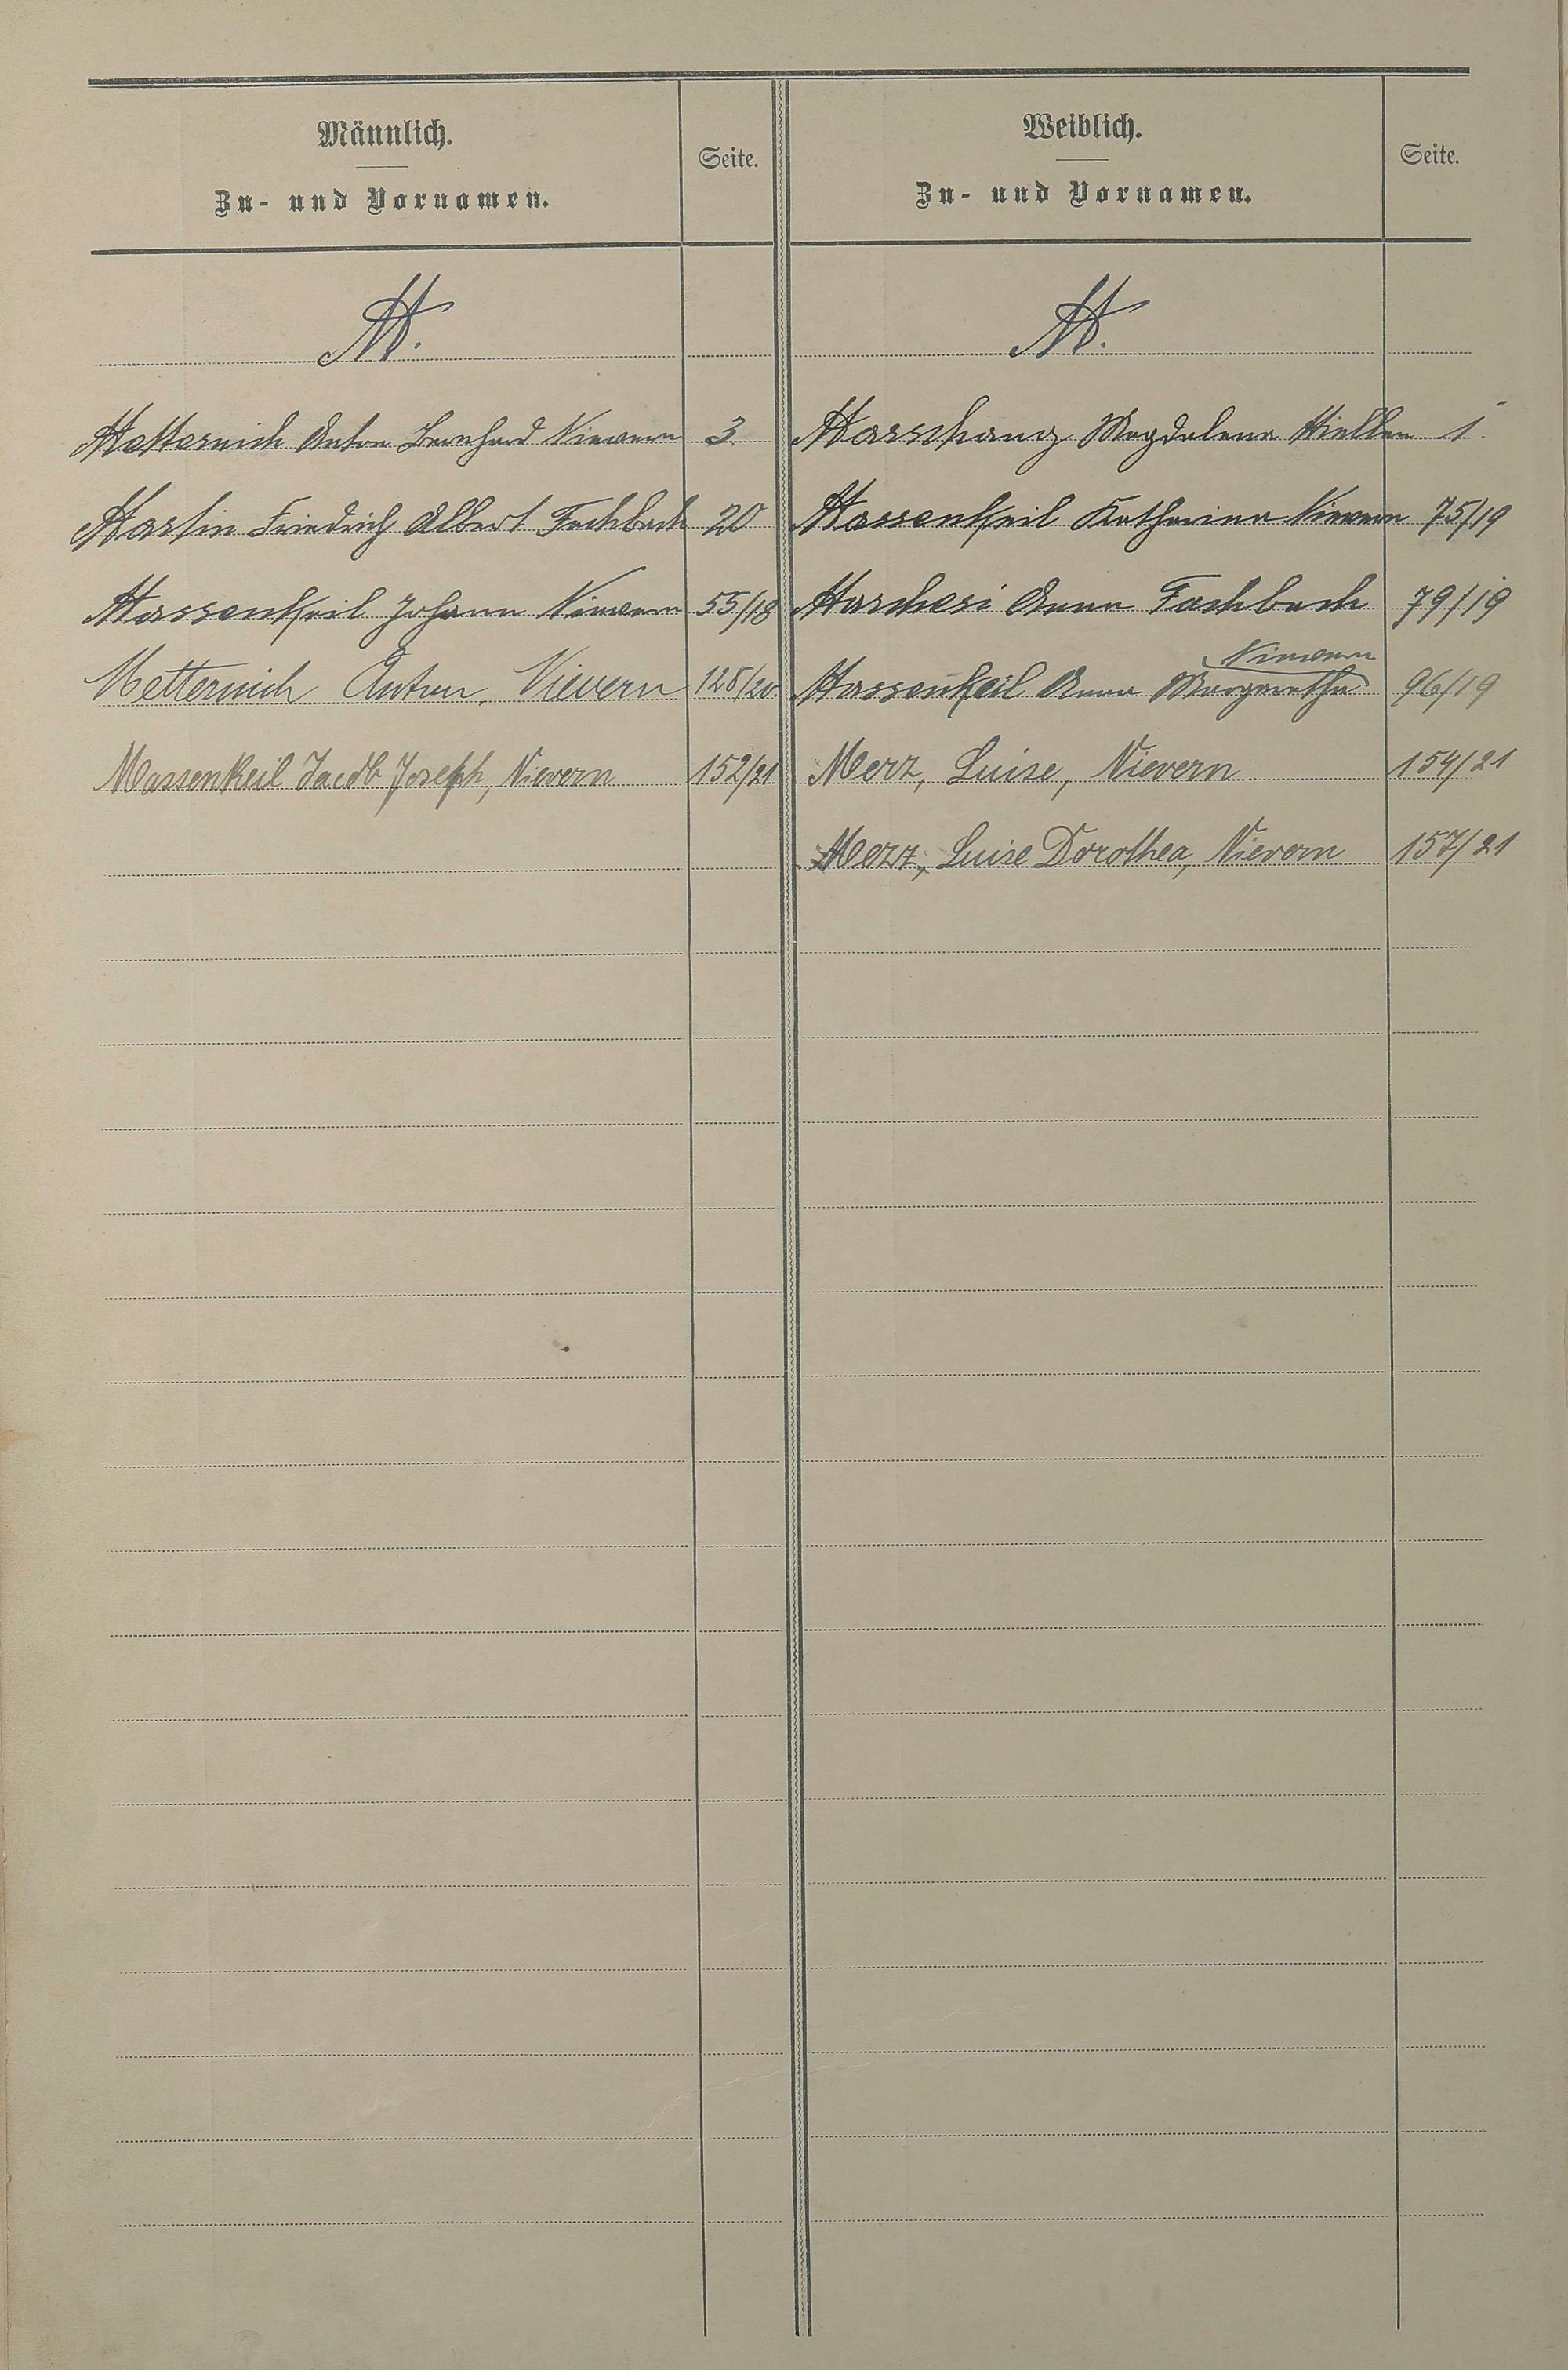 Männlich.
Zu- und Vornamen.
Seite.
Weiblich.
Zu- und Vornamen.
Seite.
M.
M.
Metternich Anton Bernhard Nievern 3
Martin Friedrich Albert Fachbach 20
Massenkeil Johann Nievern 55/18
Metternich Anton, Nievern 128/20
Massenkeil Jacob Joseph, Nievern 152/21
Magdalena Miellen 1
Massenkeil Katharina Nievern 75/19
Marchesi Anna Fachbach 79/19
Nievern
Massenkeil Anna Margaretha 96/19
Merz, Luise, Nievern 154/21
Merz, Luise Dorothea, Nievern 157/21